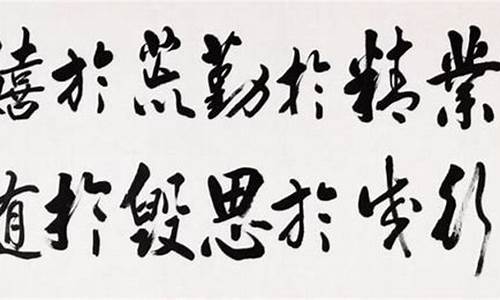 業精於勤荒於嬉
行成於思毀於